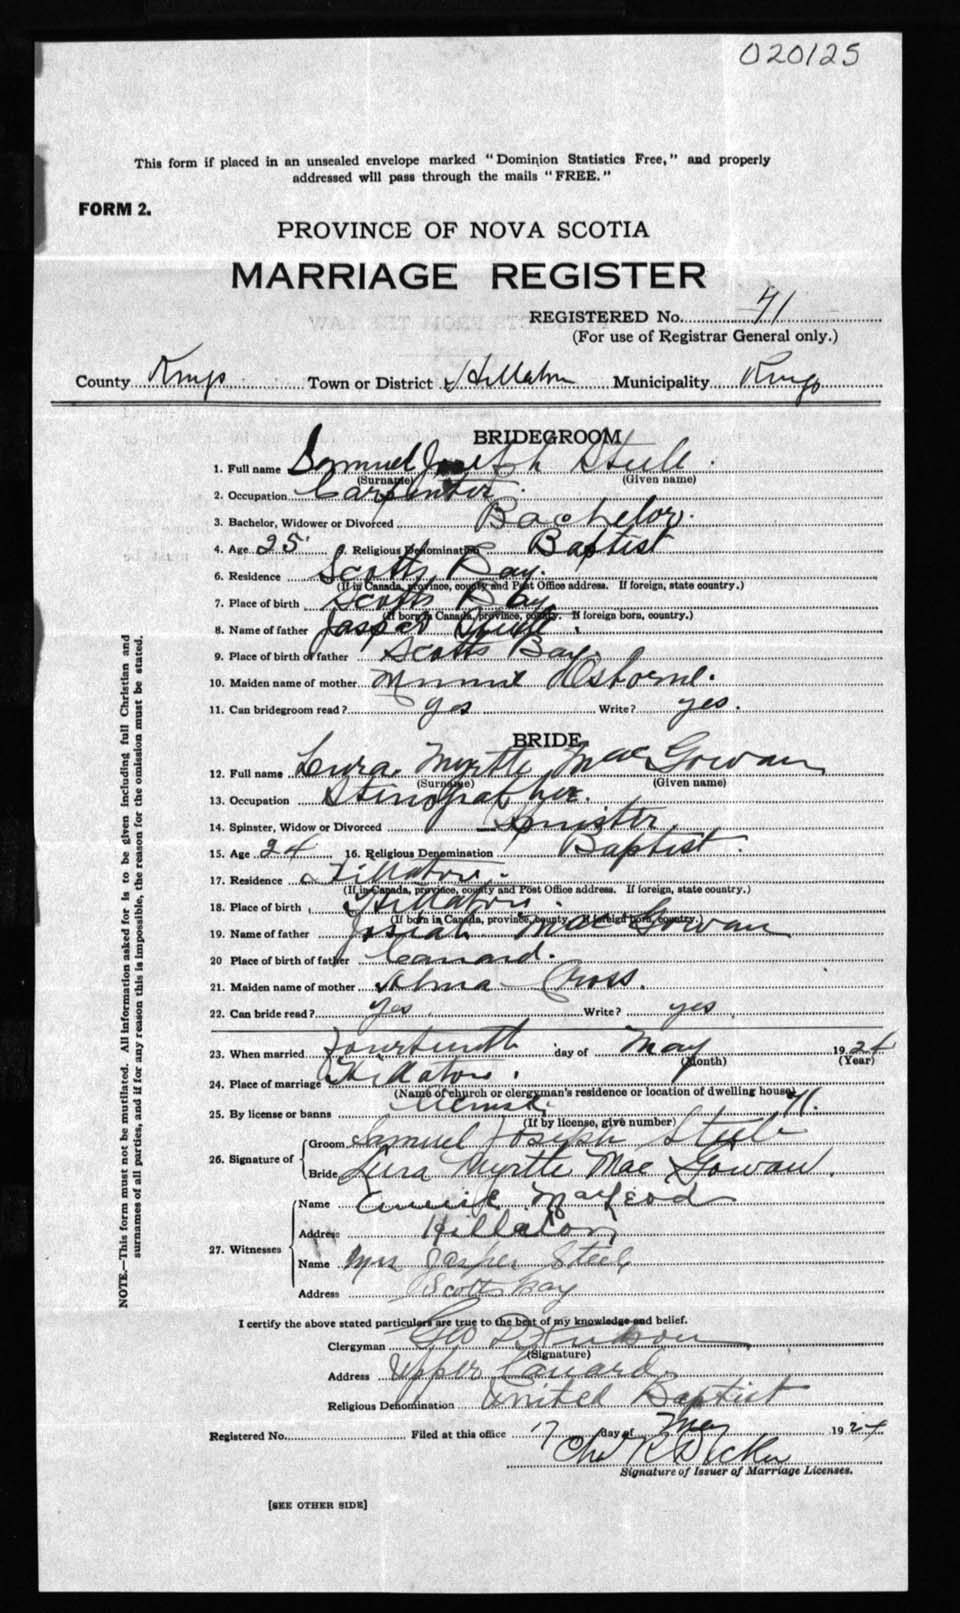 020125
This form if placed in an unsealed envelope marked "Dominion Statistics Free," and properly
addressed will pass through the mails "FREE."
FORM 2.
PROVINCE OF NOVA SCOTIA
MARRIAGE REGISTER
REGISTERED No. 71
(For use of Registrar General only.)
County Kings Town or District Hillaton Municipality Kings
BRIDEGROOM
1. Full name Samuel Joseph Steele.
(Surname) (Given name)
2. Occupation Carpenter.
3. Bachelor, Widower or Divorced Bachelor.
4. Age 25 5. Religious Denomination Baptist
6. Residence Scotts Bay.
(If in Canada, province, county and Post Office address. If foreign, state country.)
7. Place of birth Scotts Bay
(If born in Canada, province, county. If foreign born, country.)
8. Name of father Jasper Steele
9. Place of birth of father Scotts Bay.
10. Maiden name of mother Minnie Osborne.
11. Can bridegroom read? yes Write? yes.
BRIDE
12. Full name Lura Myrtle MacGowan
(Surname) (Given name)
13. Occupation Stenographer.
14. Spinster, Widow or Divorced Spinster
15. Age 24 16. Religious Denomination Baptist.
17. Residence Hillaton.
(If in Canada, province, county and Post Office address. If foreign, state country.)
18. Place of birth Hillaton.
(If born in Canada, province, county. If foreign born, country.)
19. Name of father Josiah MacGowan
20 Place of birth of father Canard.
21. Maiden name of mother Alma Cross.
22. Can bride read? yes Write? yes.
23. When married Fourteenth day of May 1924
(Month) (Year)
24. Place of marriage Hillaton.
(Name of church or clergyman's residence or location of dwelling house)
25. By license or banns License 71.
(If by license, give number)
26. Signature of Groom Samuel Joseph Steele
Bride Lura Myrtle MacGowan.
27. Witnesses
Name Annie MacLeod
Address Hillaton
Name Mrs Jasper Steele
Address Scotts Bay
I certify the above stated particulars are true to the best of my knowledge and belief.
Clergyman Geo D Hudson
(Signature)
Address Upper Canard.
Religious Denomination United Baptist
Registered No. Filed at this office 17 day of May 1924
Signature of Issuer of Marriage Licenses.
[SEE OTHER SIDE]
NOTE.—This form must not be mutilated. All information asked for is to be given including full Christian and
surnames of all parties, and if for any reason this is impossible, the reason for the omission must be stated.